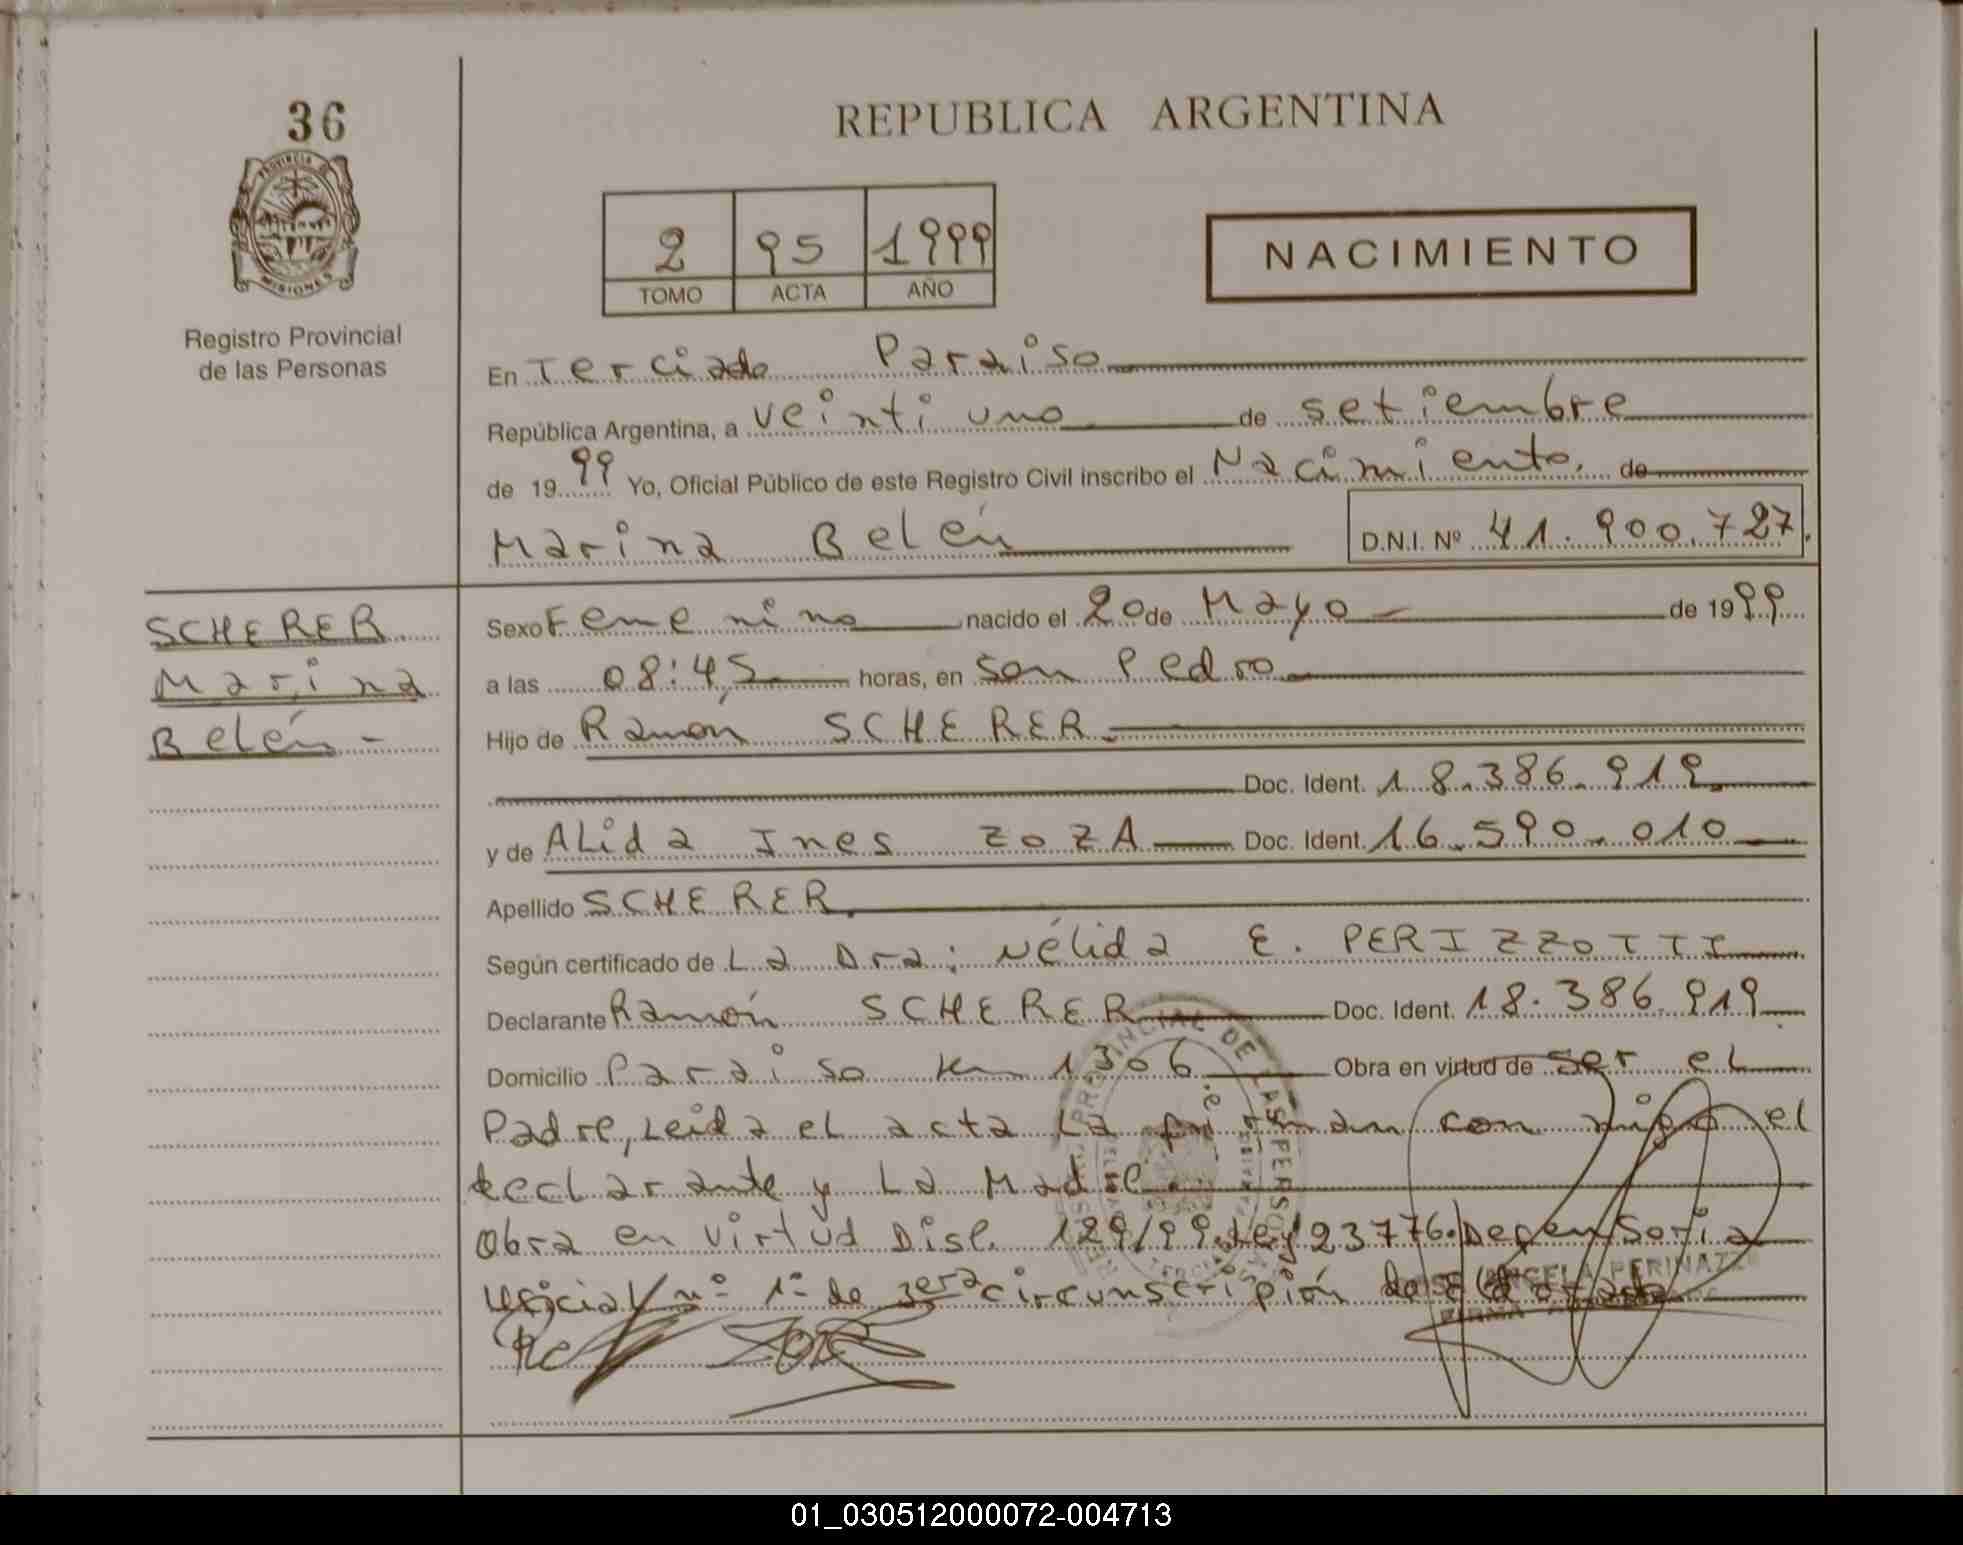 36
REPUBLICA ARGENTINA
PROVINCIA
MISIONES
2 95 1999
TOMO ACTA AÑO
NACIMIENTO
Registro Provincial
de las Personas
En Terciado Paraiso
República Argentina, a veinti uno de setiembre
de 19 99 Yo, Oficial Público de este Registro Civil inscribo el Nacimiento. de
Marina Belén D.N.I. Nº 41.900.727.
SCHERER
Marina
Belén -
Sexo Femenino nacido el 20 de Mayo de 1999
a las 08:45 horas, en San Pedro
Hijo de Ramón SCHERER
Doc. Ident. 18.386.919
y de ALida Ines ZOZA Doc. Ident. 16.590.010
Apellido SCHERER
Según certificado de La Dra: Nélida E. PERIZZOTTI
Declarante Ramón SCHERER Doc. Ident. 18.386.919
Domicilio Paraiso km 1306 Obra en virtud de ser el
Padre, Leida el acta La firman con migo el
declarante y La Madre
Obra en virtud Disp. 129/99.Ley 23776. Defensoria
oficial nº 1º de 3era circunscripión de
01_030512000072-004713